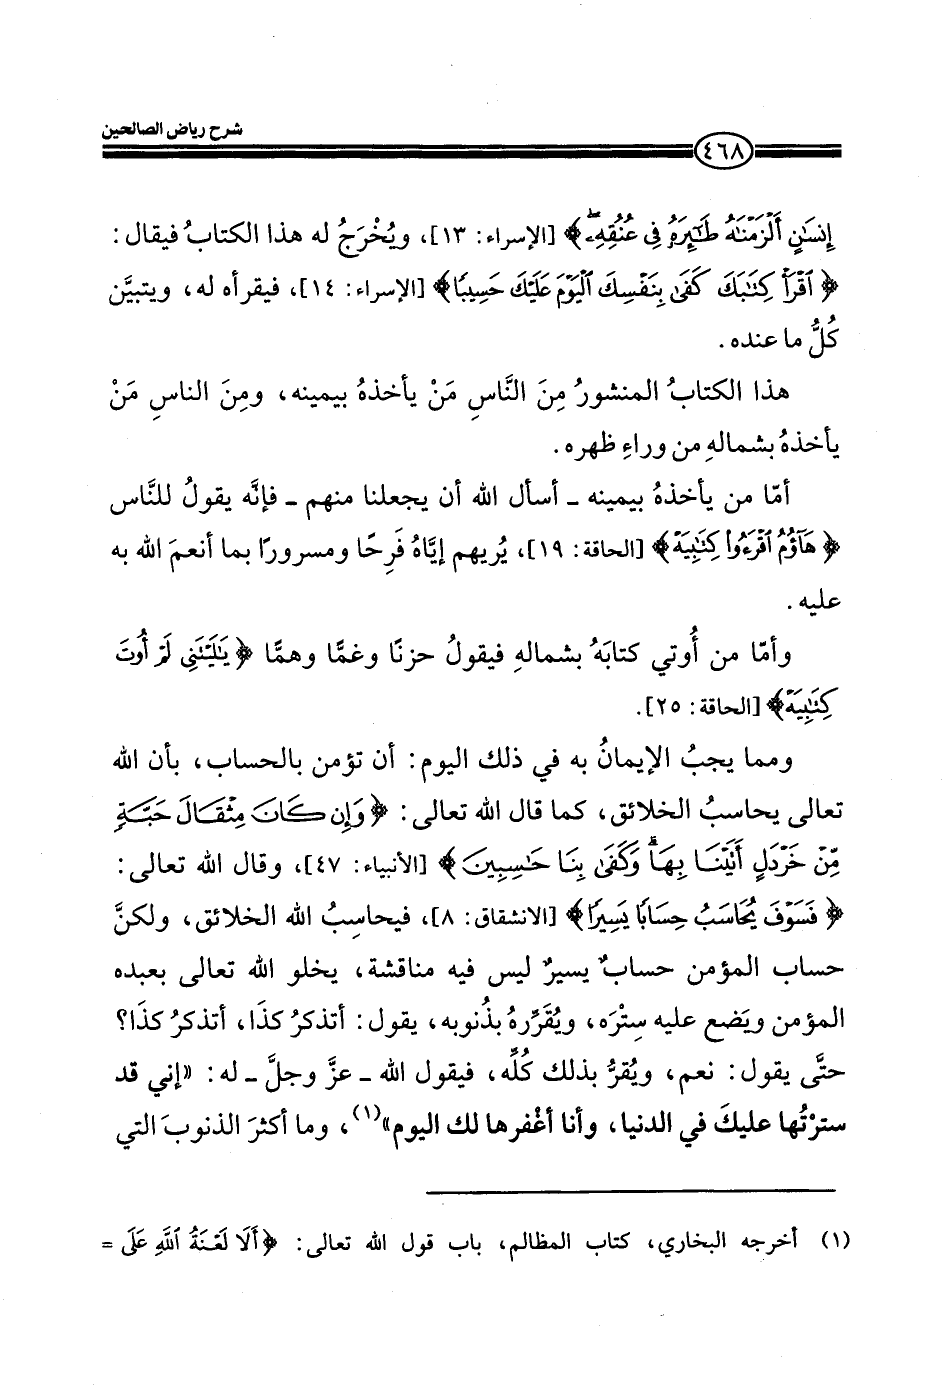 شرح رياض الصالحين
٤٦٨
إِنسَٰنٍ أَلْزَمْنَٰهُ طَٰٓئِرَهُۥ فِى عُنُقِهِۦۖ﴾ [الإسراء: ١٣]، ويُخْرَجُ له هذا الكتابُ فيقال:
﴿ٱقْرَأْ كِتَٰبَكَ كَفَىٰ بِنَفْسِكَ ٱلْيَوْمَ عَلَيْكَ حَسِيبًا﴾ [الإسراء: ١٤]، فيقرأه له، ويتبيَّن
كُلُّ ما عنده.
هذا الكتابُ المنشورُ مِنَ النَّاسِ مَنْ يأخذهُ بيمينه، ومِنَ الناسِ مَنْ
يأخذهُ بشمالهِ من وراءِ ظهره.
أمّا من يأخذهُ بيمينه ـ أسأل الله أن يجعلنا منهم ـ فإنَّه يقولُ للنَّاس
﴿هَآؤُمُ ٱقْرَءُوا۟ كِتَٰبِيَهْ﴾ [الحاقة: ١٩]، يُريهم إيَّاهُ فَرِحًا ومسرورًا بما أنعمَ الله به
عليه.
وأمّا من أُوتي كتابَهُ بشمالهِ فيقولُ حزنًا وغمًّا وهمًّا ﴿يَٰلَيْتَنِى لَمْ أُوتَ
كِتَٰبِيَهْ﴾ [الحاقة: ٢٥].
ومما يجبُ الإيمانُ به في ذلك اليوم: أن تؤمن بالحساب، بأن الله
تعالى يحاسبُ الخلائق، كما قال الله تعالى: ﴿وَإِن كَانَ مِثْقَالَ حَبَّةٍ
مِّنْ خَرْدَلٍ أَتَيْنَا بِهَاۗ وَكَفَىٰ بِنَا حَٰسِبِينَ﴾ [الأنبياء: ٤٧]، وقال الله تعالى:
﴿فَسَوْفَ يُحَاسَبُ حِسَابًا يَسِيرًا﴾ [الانشقاق: ٨]، فيحاسبُ الله الخلائق، ولكنَّ
حساب المؤمن حسابٌ يسيرٌ ليس فيه مناقشة، يخلو الله تعالى بعبده
المؤمن ويَضع عليه سِتْرَه، ويُقَرِّرهُ بذُنوبه، يقول: أتذكرُ كذَا، أتذكرُ كذَا؟
حتَّى يقول: نعم، ويُقرُّ بذلك كُلِّه، فيقول الله ـ عزَّ وجلَّ ـ له: «إني قد
سترْتُها عليكَ في الدنيا، وأنا أغْفرها لك اليوم»(١)، وما أكثرَ الذنوبَ التي
(١) أخرجه البخاري، كتاب المظالم، باب قول الله تعالى: ﴿أَلَا لَعْنَةُ ٱللَّهِ عَلَى =